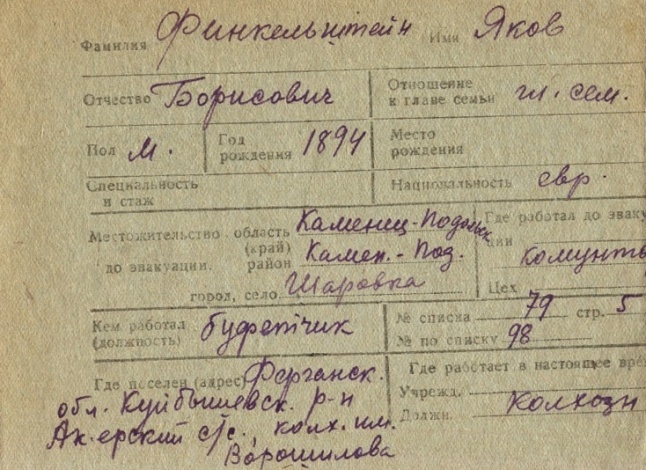 Фамилия Финкельштейн Имя Яков
Отчество Борисович Отношение к главе семьи гл. сем.
Пол м. Год рождения 1894 Место рождения
Специальность и стаж Национальность евр.
Местожительство область Каменец-Подольск Где работал до эваку
(край)
до эвакуации. район Камен.-Под. ции
город, село Шаровка Цех
Кем работал (должность) буфетчик № списка 79 стр. 5
№ по списку 98
Где поселен (адрес) Ферганск. Где работает в настоящее вре
обл. Куйбышевск. р-н Учрежд.
с/с, колх. им. Должн. колхозн
Ворошилова